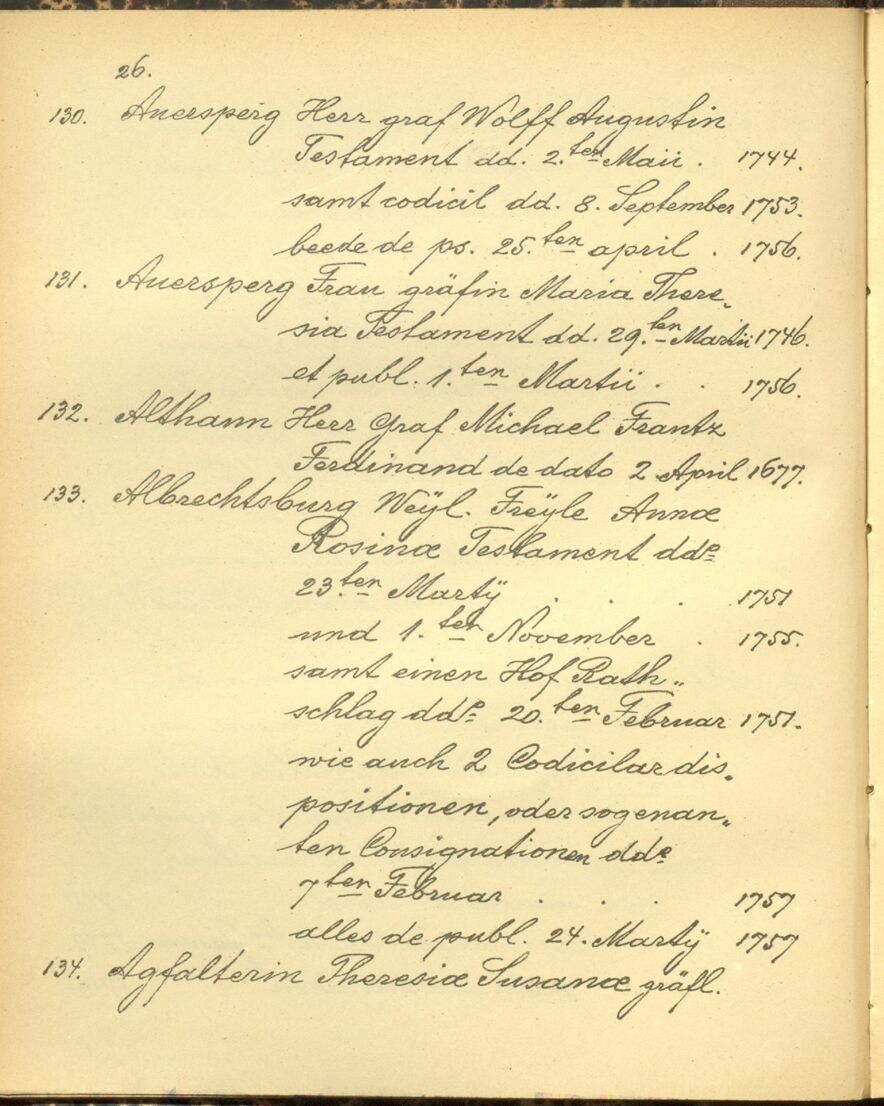 26.
130. Auersperg Herr graf Wolff Augustin
Testament dd. 2.ten Maii . 1744.
samt codicil dd. 8. September 1753.
beede de ps. 25.ten april . 1756.
131. Auersperg Frau gräfin Maria There„
sia Testament dd. 29.ten Martii 1746.
et publ. 1.ten Martii . . 1756.
132. Althann Herr Graf Michael Frantz
Ferdinand de dato 2 April 1677.
133. Albrechtsburg Weÿl. Freÿle Annæ
Rosinæ Testament ddo
23.ten Martÿ . . . 1751
und 1.ten November . 1755.
samt einen Hof Rath„
schlag ddo 20.ten Februar 1751.
wie auch 2 Codicilar dis„
positionen, oder sogenan„
ten Consignationen ddo
7ten Februar . . . 1757
alles de publ. 24. Martÿ 1757
134. Agfalterin Theresiæ Susanæ gräfl.